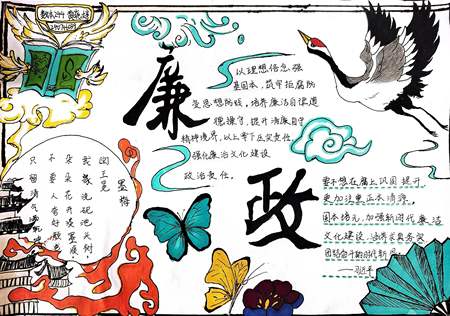 廉
政
以理想信念强
基固本,筑牢拒腐防
变思想防线,培养廉洁自律道
德操守,提升清廉自守
精神境界,以上率下压实责任,
强化廉洁文化建设
政治责任。
墨梅
[元]王冕
我家洗砚池头树,
朵朵花开淡墨痕。
不要人夸好颜色,
只留清气满乾坤。
要不想在腐上巩固提升
更加注重正本清源、
固本培元,加强新时代廉洁
文化建设
——习近平